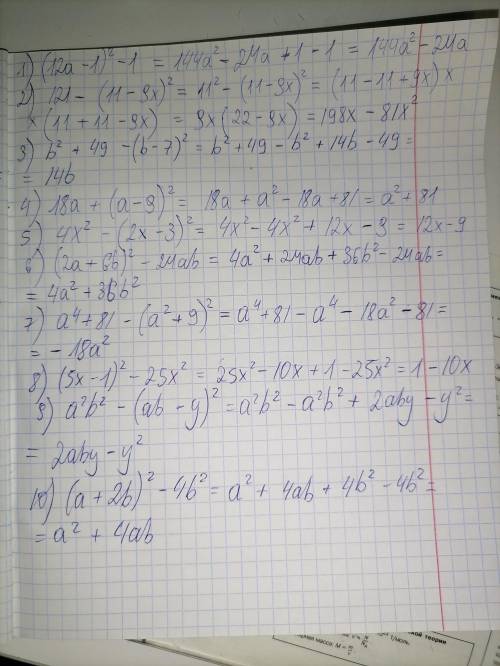 1) (12a-1)²-1 = 144a²-24a+1-1 = 144a²-24a
2) 121-(11-9x)² = 11²-(11-9x)² = (11-11+9x)×
×(11+11-9x) = 9x(22-9x) = 198x-81x²
3) b²+49-(b-7)² = b²+49-b²+14b-49 =
= 14b
4) 18a+(a-9)² = 18a+a²-18a+81 = a²+81
5) 4x²-(2x-3)² = 4x²-4x²+12x-3 = 12x-9
6) (2a+6b)²-24ab = 4a²+24ab+36b²-24ab =
= 4a²+36b²
7) a⁴+81-(a²+9)² = a⁴+81-a⁴-18a²-81 =
= -18a²
8) (5x-1)²-25x² = 25x²-10x+1-25x² = 1-10x
9) a²b²-(ab-y)² = a²b²-a²b²+2aby-y² =
= 2aby-y²
10) (a+2b)²-4b² = a²+4ab+4b²-4b² =
= a²+4ab